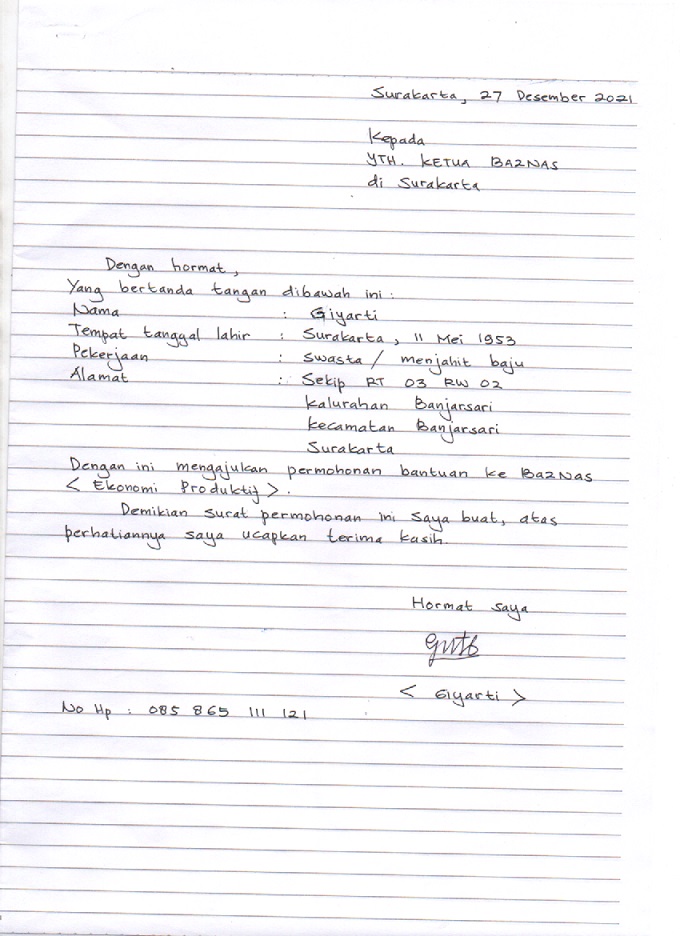 Surakarta, 27 Desember 2021
Kepada
YTH. KETUA BAZNAS
di Surakarta
Dengan hormat,
Yang bertanda tangan dibawah ini :
Nama : Giyarti
Tempat tanggal lahir : Surakarta, 11 Mei 1953
Pekerjaan : Swasta / menjahit baju
Alamat : Sekip RT 03 RW 02
Kalurahan Banjarsari
Kecamatan Banjarsari
Surakarta
Dengan ini mengajukan permohonan bantuan ke BAZNAS
< Ekonomi Produktif >.
Demikian surat permohonan ini saya buat, atas
perhatiannya saya ucapkan terima kasih.
Hormat saya
< Giyarti >
No Hp : 085 865 111 121